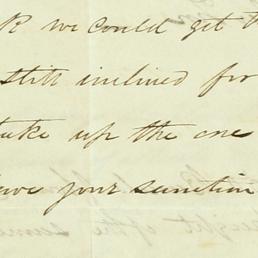 we could get
still inclined for
take up the one
your sanction